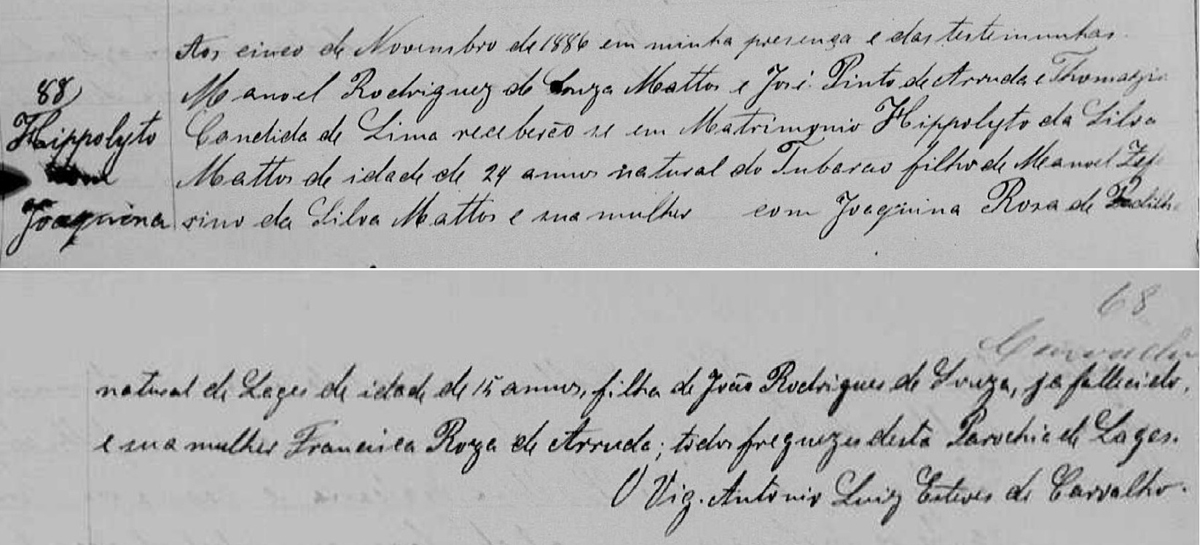 Aos cinco de Novembro de 1886 em minha presença e das testemunhas
88
Manoel Rodriguez de Souza Mattos e José Pinto de Arruda e Thomazia
Hippolyto
Candida de Lima receberão se em Matrimonio Hippolyto da Silva
Mattos de idade de 24 annos natural do Tubarao filho de Manoel Zefe
Joaquina
rino da Silva Mattos e sua mulher com Joaquina Rosa de Padilha
68
Carvalho
natural de Lages de idade de 15 annos, filha de João Rodrigues de Souza, ja fallecido,
e sua mulher Francisca Roza de Arruda; todos freguezes desta Parochia de Lages.
O Vig. Antonio Luiz Esteves de Carvalho.